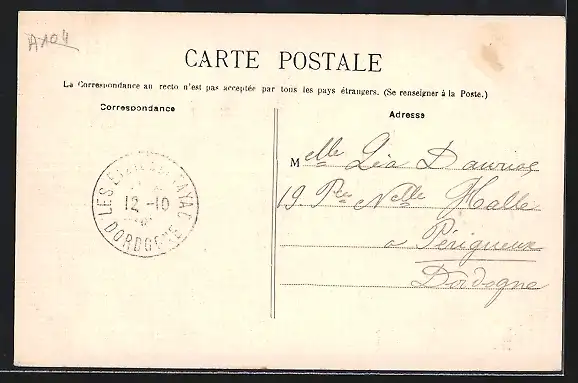 A104
CARTE POSTALE
La Correspondance au recto n'est pas acceptée par tous les pays étrangers. (Se renseigner à la Poste.)
Correspondance
Adresse
Melle Léa Dauriac
19. Pce Nelle Halle
a Périgueux
Dordogne
LES EYZIES DE TAYAC
12 -10
DORDOGNE